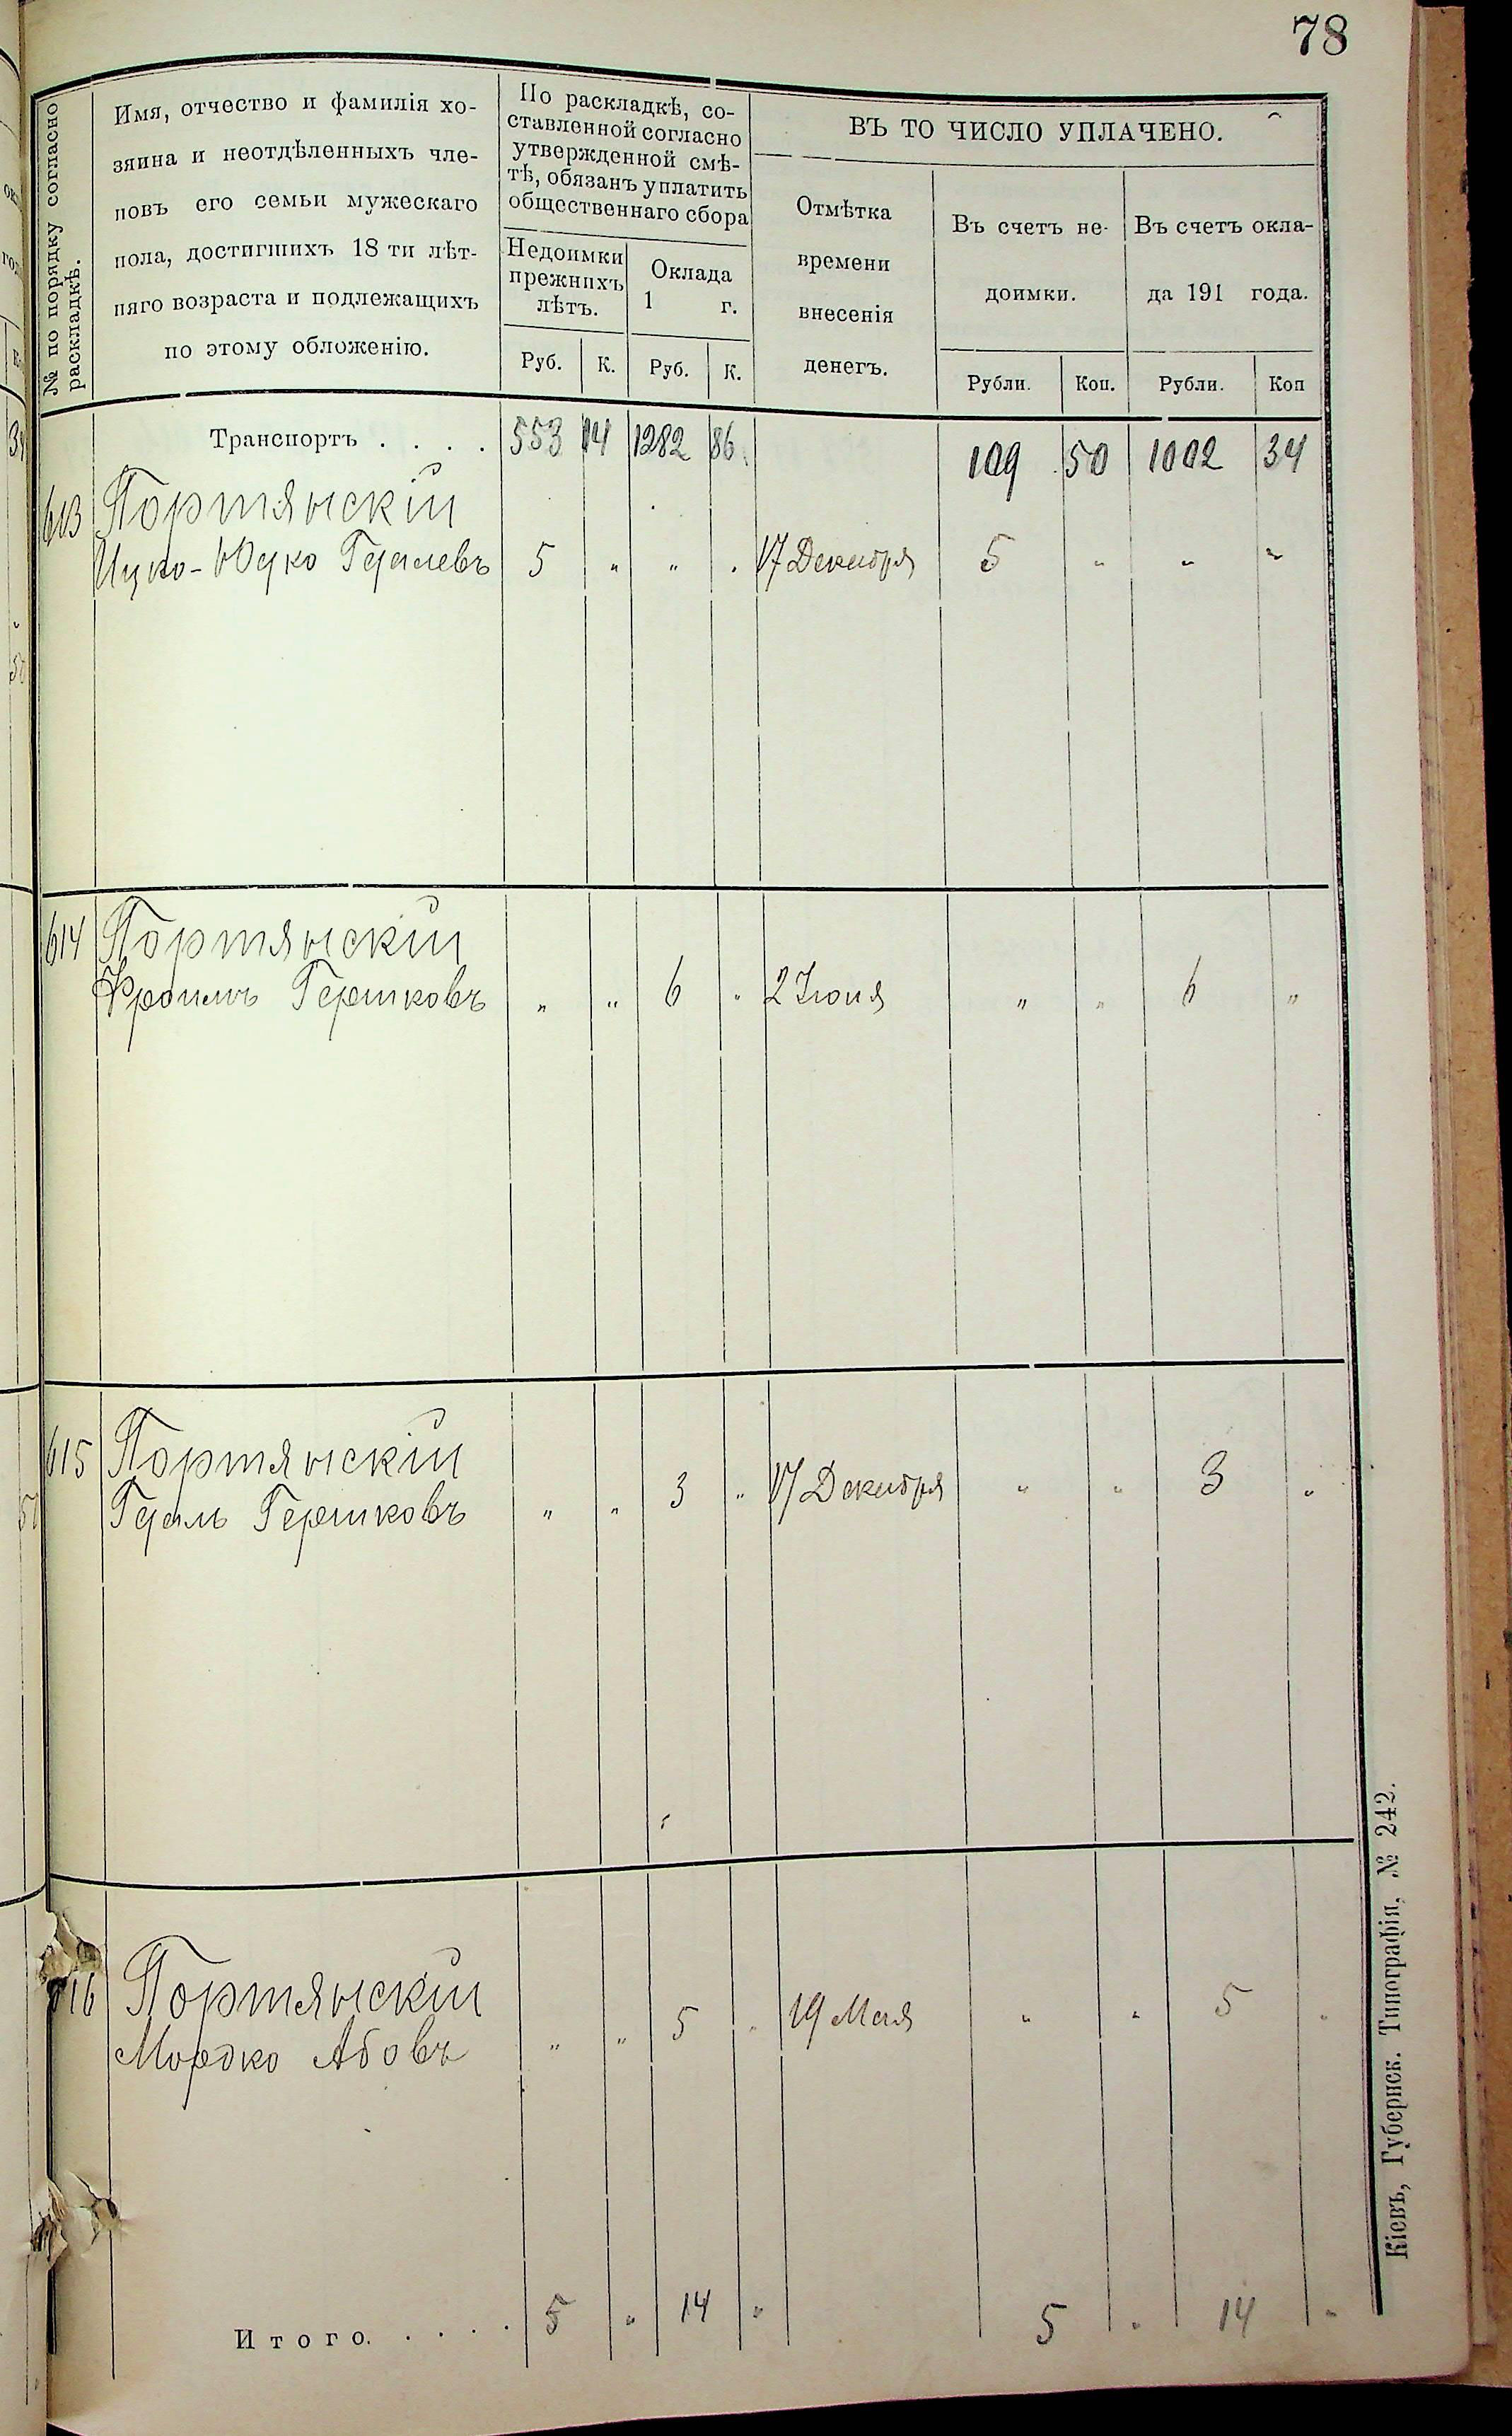 78
№ по порядку согласно
раскладкѣ.
Имя, отчество и фамилія хо-
зяина и неотдѣленныхъ чле-
новъ его семьи мужескаго
пола, достигшихъ 18 ти лѣт-
няго возраста и подлежащихъ
по этому обложенію.
По раскладкѣ, со-
ставленной согласно
утвержденной смѣ-
тѣ, обязанъ уплатить
общественнаго сбора
Недоимки
прежнихъ
лѣтъ.
Оклада
1 г.
Руб. К. Руб. К.
ВЪ ТО ЧИСЛО УПЛАЧЕНО.
Отмѣтка
времени
внесенія
денегъ.
Въ счетъ не-
доимки.
Въ счетъ окла-
да 191 года.
Рубли. Коп. Рубли. Коп
Транспортъ . . . . 553 14 1282 86 109 50 1002 34
613 Портянскій
Ицко-Юдко Гдалевъ 5 „ „ „ 17 Декабря 5 „ „ „
614 Портянскій
Фроимъ Гершковъ „ „ 6 „ 2 Іюня „ „ 6 „
615 Портянскій
Гдаль Гершковъ „ „ 3 „ 17 Декабря „ „ 3 „
616 Портянскій
Мордко Абовъ „ „ 5 „ 19 Мая „ „ 5 „
Итого. . . . . 5 „ 14 „ 5 „ 14 „
Кіевъ, Губернск. Типографія, № 242.